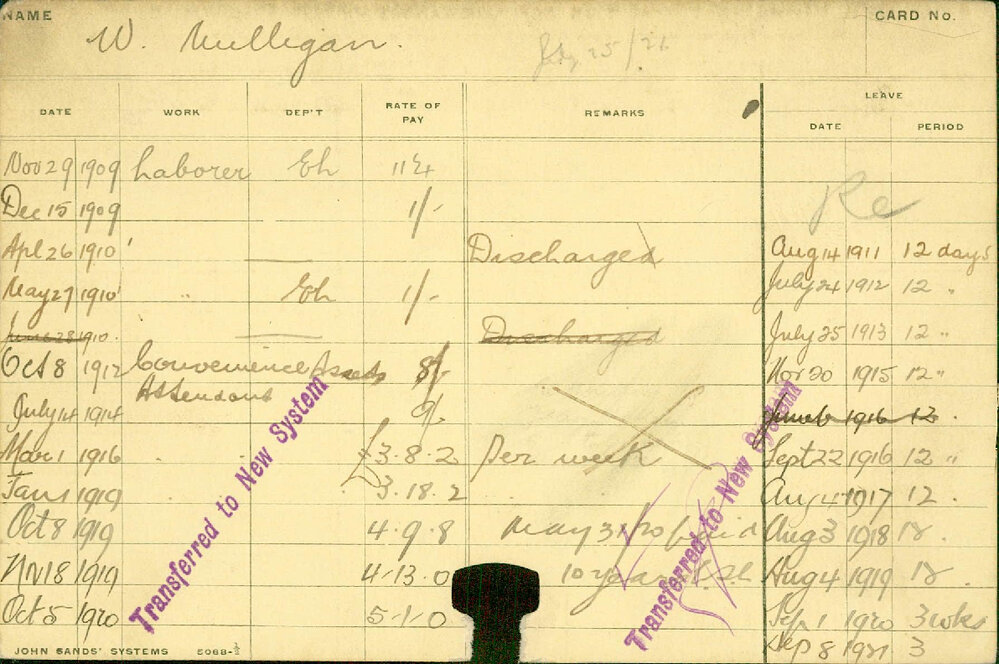 NAME W. Mulligan. CARD No.
DATE WORK DEP'T RATE OF PAY REMARKS LEAVE
DATE PERIOD
Nov 29 1909 Laborer Eh
Dec 15 1909 1/-
Re
Apl 26 1910 Discharged Aug 14 1911 12 days
May 27 1910 " Eh 1/- July 24 1912 12 "
June 28 1910 Discharged July 25 1913 12 "
Oct 8 1912 Convenience 8/- Nov 20 1915 12 "
Attendant
July 14 1914 9/- June 6 1916 12 "
Mar 1 1916 £3.8.2 per week Sept 22 1916 12 "
Jan 1 1919 3.18.2 Aug 4 1917 12 "
Oct 8 1919 4.9.8 May 31/20 paid Aug 3 1918 12 "
Nov 18 1919 4.13.0 10 years Aug 4 1919 12 "
Oct 5 1920 5.1.0 Sep 1 1920 3 wks
Sep 8 1921 3
Transferred to New System
Transferred to New System
JOHN SANDS' SYSTEMS